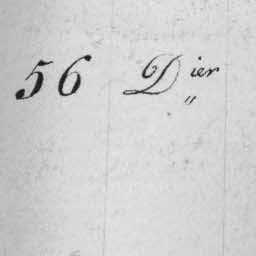 56 D ier
"